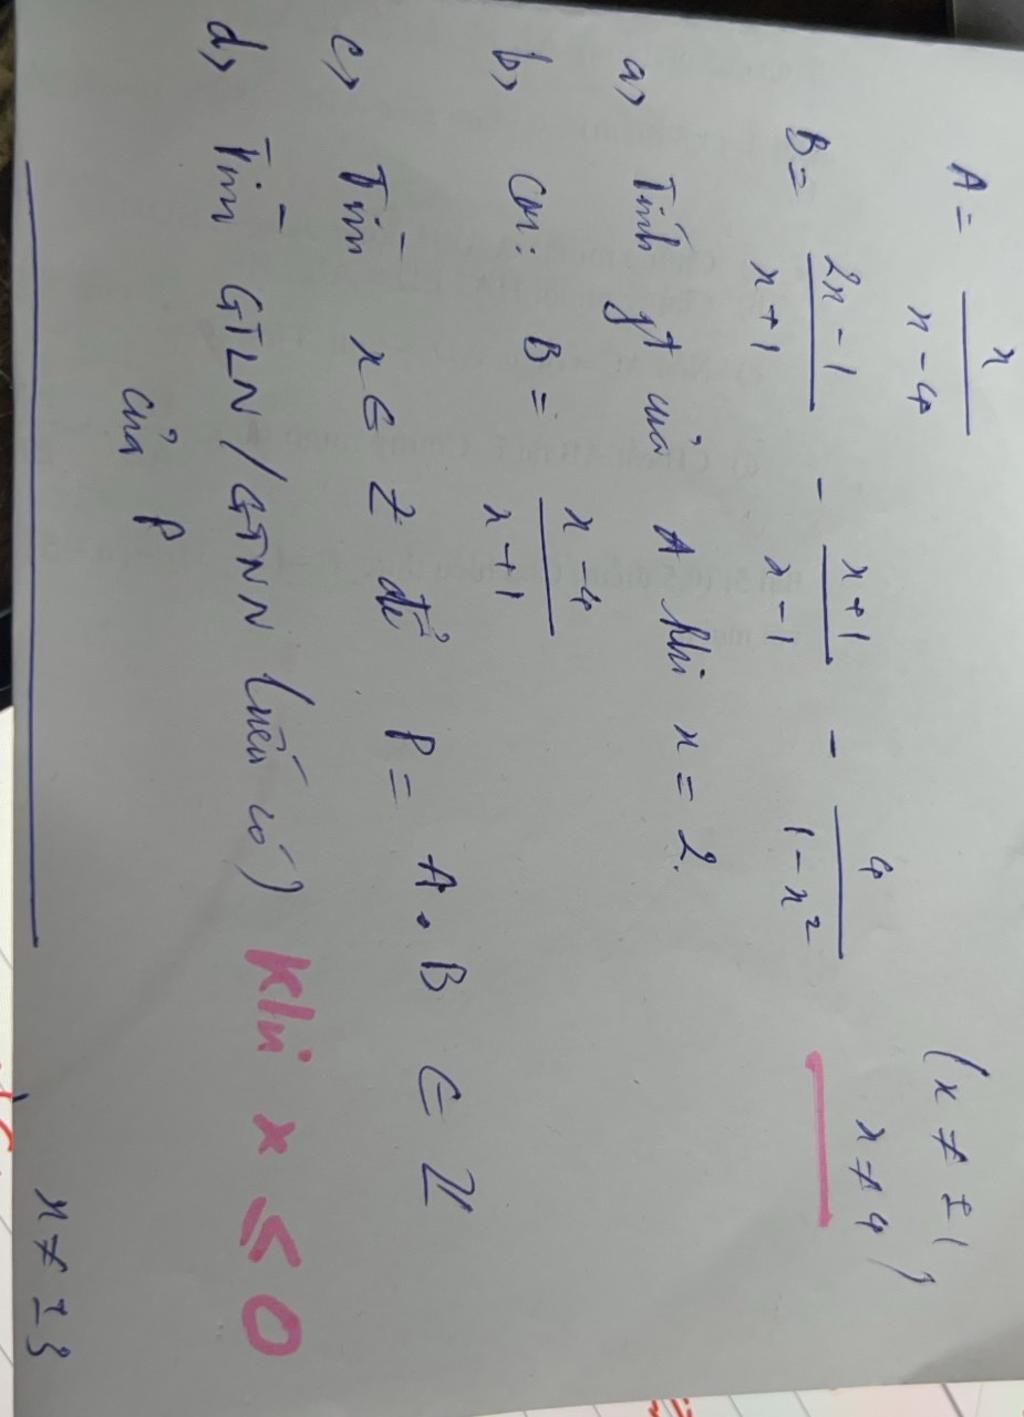 A = x / (x - 4)
B = (2x - 1) / (x + 1) - (x + 1) / (x - 1) - 4 / (1 - x²) (x ≠ ±1
x ≠ 4)
a) Tính gt của A khi x = 2.
b) Cm: B = (x - 4) / (x + 1)
c) Tìm x ∈ Z để P = A . B ∈ Z
d) Tìm GTLN / GTNN (nếu có) khi x ≤ 0
của P
x ≠ ± 3